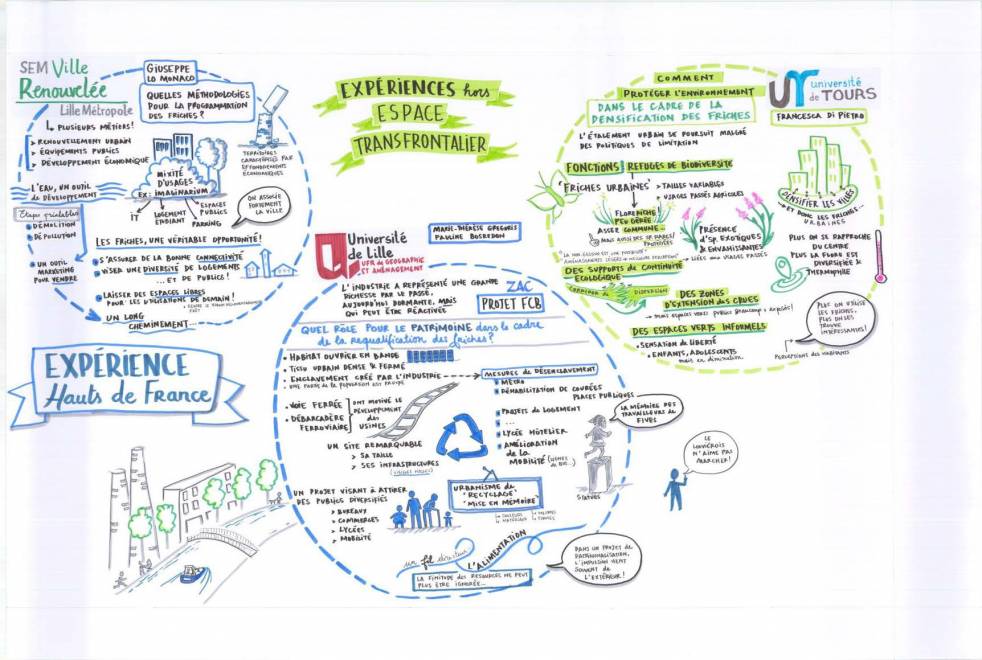 SEM Ville
Renouvelée
Lille Métropole
↳ PLUSIEURS MÉTIERS!
> RENOUVELLEMENT URBAIN
> ÉQUIPEMENTS PUBLICS
> DÉVELOPPEMENT ÉCONOMIQUE
GIUSEPPE
LO MONACO
QUELLES MÉTHODOLOGIES
POUR LA PROGRAMMATION
DES FRICHES?
TERRITOIRES
CARACTÉRISÉS PAR
EFFONDREMENTS
ÉCONOMIQUES
L'EAU, UN OUTIL
DE DÉVELOPPEMENT
MIXITÉ
D'USAGES
EX: IMAGINARIUM
IT
LOGEMENT
ÉTUDIANT
ESPACES
PUBLICS
PARKING
ON ASSOCIE
FORTEMENT
LA VILLE
Étapes préalables
DÉMOLITION
DÉPOLLUTION
UN OUTIL
MARKETING
POUR VENDRE
LES FRICHES, UNE VÉRITABLE OPPORTUNITÉ!
S'ASSURER DE LA BONNE CONNECTIVITÉ
VISER UNE DIVERSITÉ DE LOGEMENTS
... ET DE PUBLIC!
LAISSER DES ESPACES LIBRES
POUR LES UTILISATIONS DE DEMAIN!
UN LONG
CHEMINEMENT...
EXPÉRIENCE
Hauts de France
EXPÉRIENCES hors
ESPACE
TRANSFRONTALIER
Université
de Lille
UFR de GÉOGRAPHIE
ET AMÉNAGEMENT
MARIE-THÉRÈSE GREGORIS
PAULINE BOSREDON
L'INDUSTRIE A REPRÉSENTÉ UNE GRANDE
RICHESSE PAR LE PASSÉ.
AUJOURD'HUI DORMANTE, MAIS
QUI PEUT ÊTRE RÉACTIVÉE
ZAC
PROJET FCB
QUEL RÔLE POUR LE PATRIMOINE dans le cadre
de la requalification des friches?
HABITAT OUVRIER EN BANDE
TISSU URBAIN DENSE & FERMÉ
ENCLAVEMENT CRÉÉ PAR L'INDUSTRIE
MESURES DE DÉSENCLAVEMENT
MÉTRO
RÉHABILITATION DE COURÉES
PLACES PUBLIQUES
PROJETS DE LOGEMENT
...
LYCÉE HÔTELIER
AMÉLIORATION
de la
MOBILITÉ
VOIE FERRÉE
DÉBARCADÈRE
FERROVIAIRE
ONT MOTIVÉ LE
DÉVELOPPEMENT
des
USINES
UN SITE REMARQUABLE
> SA TAILLE
> SES INFRASTRUCTURES
LA MÉMOIRE DES
TRAVAILLEURS DE
FIVES
Statues
UN PROJET VISANT À ATTIRER
DES PUBLICS DIVERSIFIÉS
> BUREAUX
> COMMERCES
> LYCÉES
> MOBILITÉ
URBANISME DU
"RECYCLAGE"
"MISE EN MÉMOIRE"
un fil directeur
L'ALIMENTATION
LA FINITUDE DES RESSOURCES NE PEUT
PLUS ÊTRE IGNORÉE...
DANS UN PROJET DE
PATRIMONIALISATION,
L'IMPULSION VIENT
SOUVENT DE
L'EXTÉRIEUR!
COMMENT
PROTÉGER L'ENVIRONNEMENT
DANS LE CADRE DE LA
DENSIFICATION DES FRICHES
université
de TOURS
FRANCESCA DI PIETRO
L'ÉTALEMENT URBAIN SE POURSUIT MALGRÉ
DES POLITIQUES DE LIMITATION
FONCTIONS REFUGES DE BIODIVERSITÉ
'FRICHES URBAINES'
> TAILLES VARIABLES
> USAGES PASSÉS AGRICOLES
FLORE RICHE
PEU GÉRÉE
ASSEZ COMMUNE...
PRÉSENCE
D'SP. EXOTIQUES
& ENVAHISSANTES
DENSIFIER LES VILLES
ET DONC LES FRICHES
URBAINES
PLUS ON SE RAPPROCHE
DU CENTRE
PLUS LA FLORE EST
DIVERSIFIÉE &
THERMOPHILE
DES SUPPORTS DE CONTINUITÉ
ÉCOLOGIQUE
DES ZONES
D'EXTENSION DES CRUES
DES ESPACES VERTS INFORMELS
SENSATION DE LIBERTÉ
ENFANTS, ADOLESCENTS
mais en diminution
PLUS ON UTILISE
LES FRICHES,
PLUS ON LES
TROUVE
INTÉRESSANTES!
Perceptions des habitants
N'AIME PAS
MARCHER!